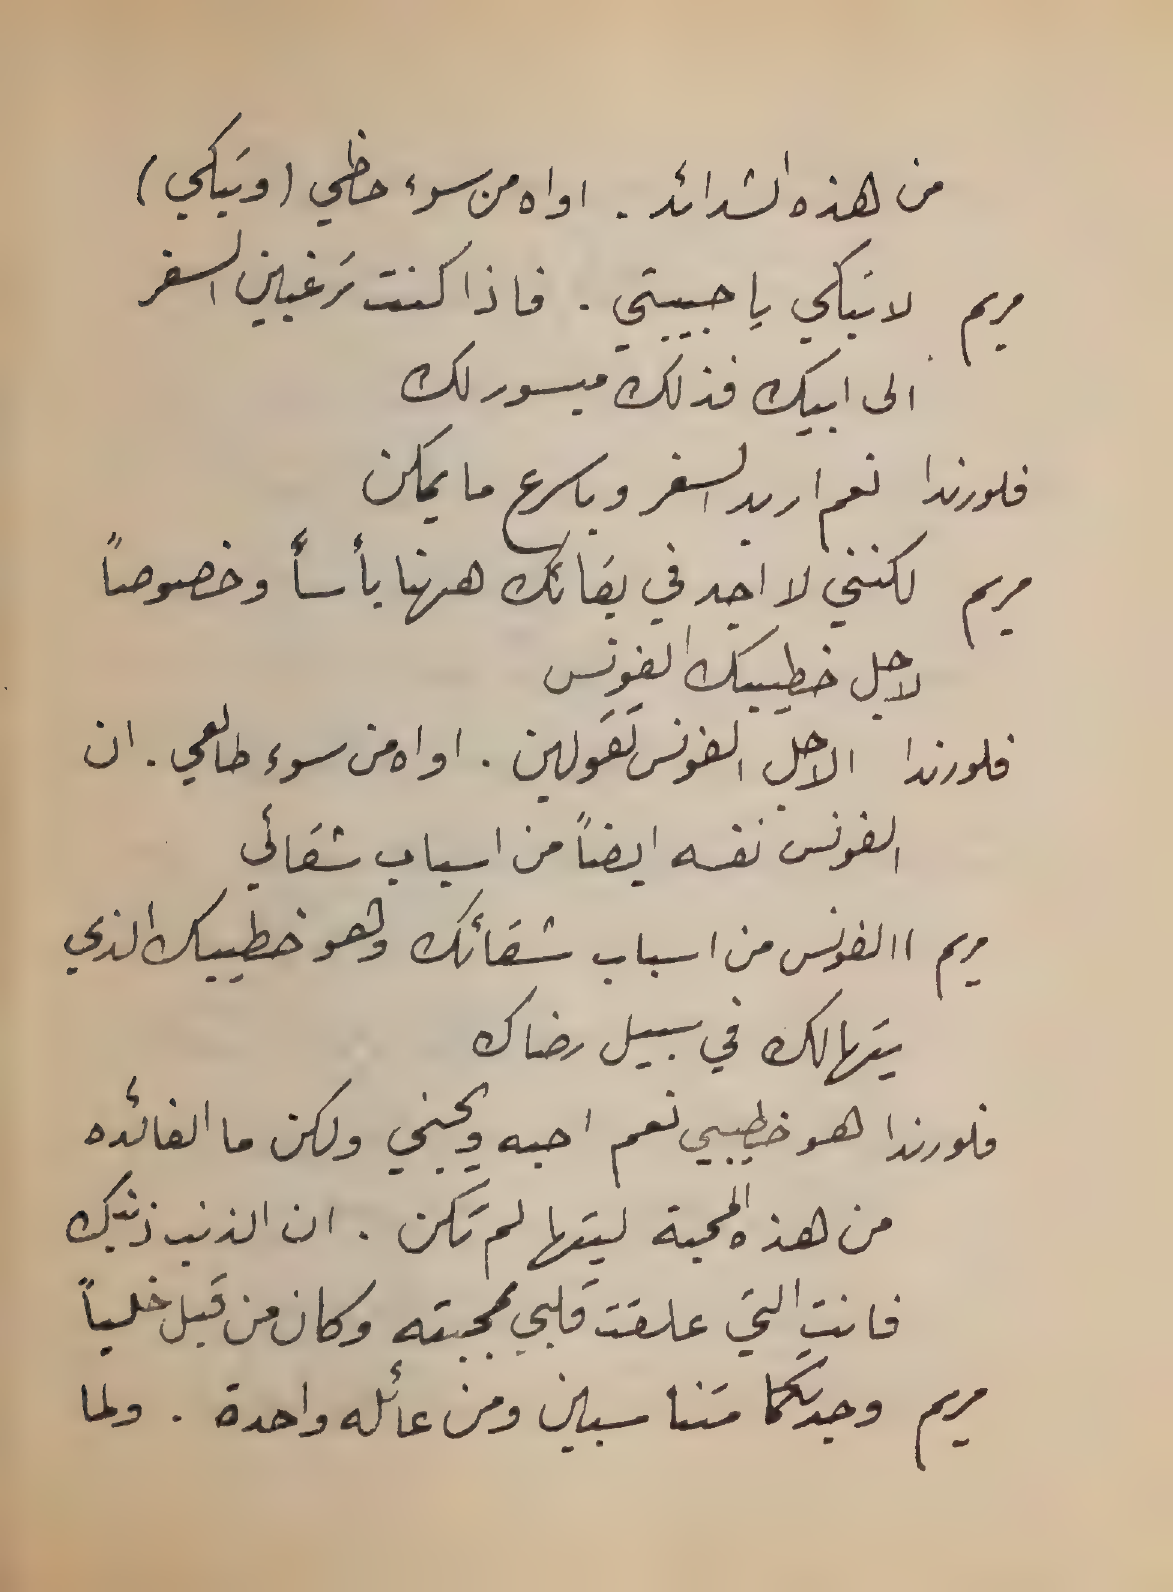 من هذه الشدائد . اواه من سوء حظي (وتبكي)
مريم لا تبكي يا حبيبتي . فاذا كنت ترغبين السفر
الى ابيك فذلك ميسور لك
فلورندا نعم اريد السفر وباسرع ما يمكن
مريم لكنني لا اجد في بقائك ههنا بأساً وخصوصاً
لاجل خطيبك الفونس
فلورندا الاجل الفونس تقولين . اواه من سوء طالعي . ان
الفونس نفسه ايضاً من اسباب شقائي
مريم االفونس من اسباب شقائك وهو خطيبك الذي
يتهالك في سبيل رضاك
فلورندا هو خطيبي نعم احبه ويحبني ولكن ما الفائده
من هذه المحبة ليتها لم تكن . ان الذنب ذنبك
فانت التي علقت قلبي بمحبته وكان من قبل خلياً
مريم وجدتكما متناسبين ومن عائله واحدة . ولما